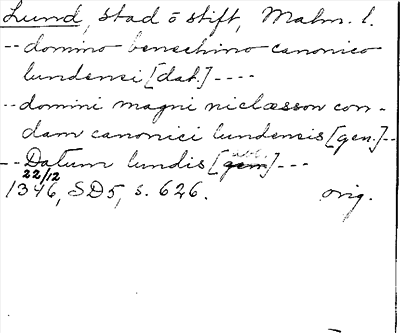 Lund, stad o stift, Malm. l.
-- domino benechino canonico
lundensi [dat.] ----
-- domini magni niclæsson con-
dam canonici lundensis [gen.] --
-- Datum lundis [abl.] ---
22/12
1346, SD5, s. 626. orig.